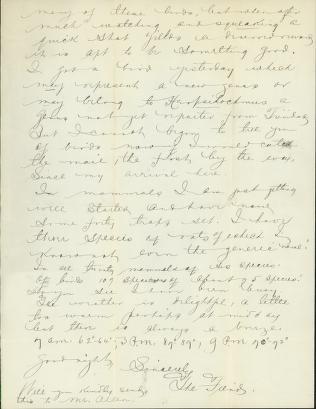 many of these birds, but when after
much watching and squeaking a
quick shot yields a
it is apt to be something good.
I got a bird yesterday which
may represent a new genus or
may belong to Herpsilochmus a
genus not yet reported from Trinidad
But I cannot begin to tell you
of birds now I would catch
the mail the first, by the way,
since my arrival here.
In mammals I am just getting
well started and have now
some forty traps set. I have
three species of rats of which I
know not even the generic name!
In all thirty mammals of six species.
Of birds 109 specimens of about 75 species.
So you see I have been busy.
The weather is delightful, a little
too warm perhaps at midday
but there is always a breeze.
7 a.m. 9 P.M.
Goodnight, Sincerely
The Fiend.
Will you kindly send
this to Mr. Allen.